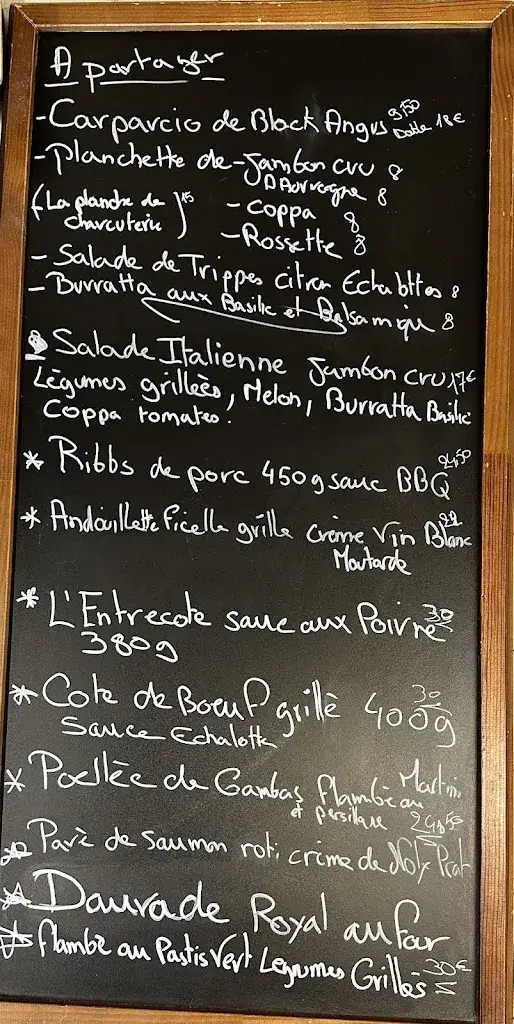 A partager
- Carparcio de Black Angus 9,50 Doble 18€
- Planchette de - Jambon cru 8
D'Auvergne 8
(La planche de charcuterie) 15 - Coppa 8
- Rossette 8
- Salade de Trippes citron Echalottes 8
- Burratta aux Basilic et Balsamique 8
Salade Italienne Jambon cru 17€
Légumes grillées, Melon, Burratta Basilic
Coppa tomates.
* Ribbs de porc 450g sauce BBQ 24,50
* Andouillette ficelle grillé crème Vin Blanc 22
Moutarde
* L'Entrecote sauce aux Poivre 30
380g
* Cote de Boeuf grillé 400g 30
Sauce Echalotte
* Poellée de Gambas flambée au Martini
et persillare 24,50
* Pavé de saumon roti crème de Noly Prat
* Daurade Royal au four
* flambé au Pastis Vert Legumes Grillés 30€